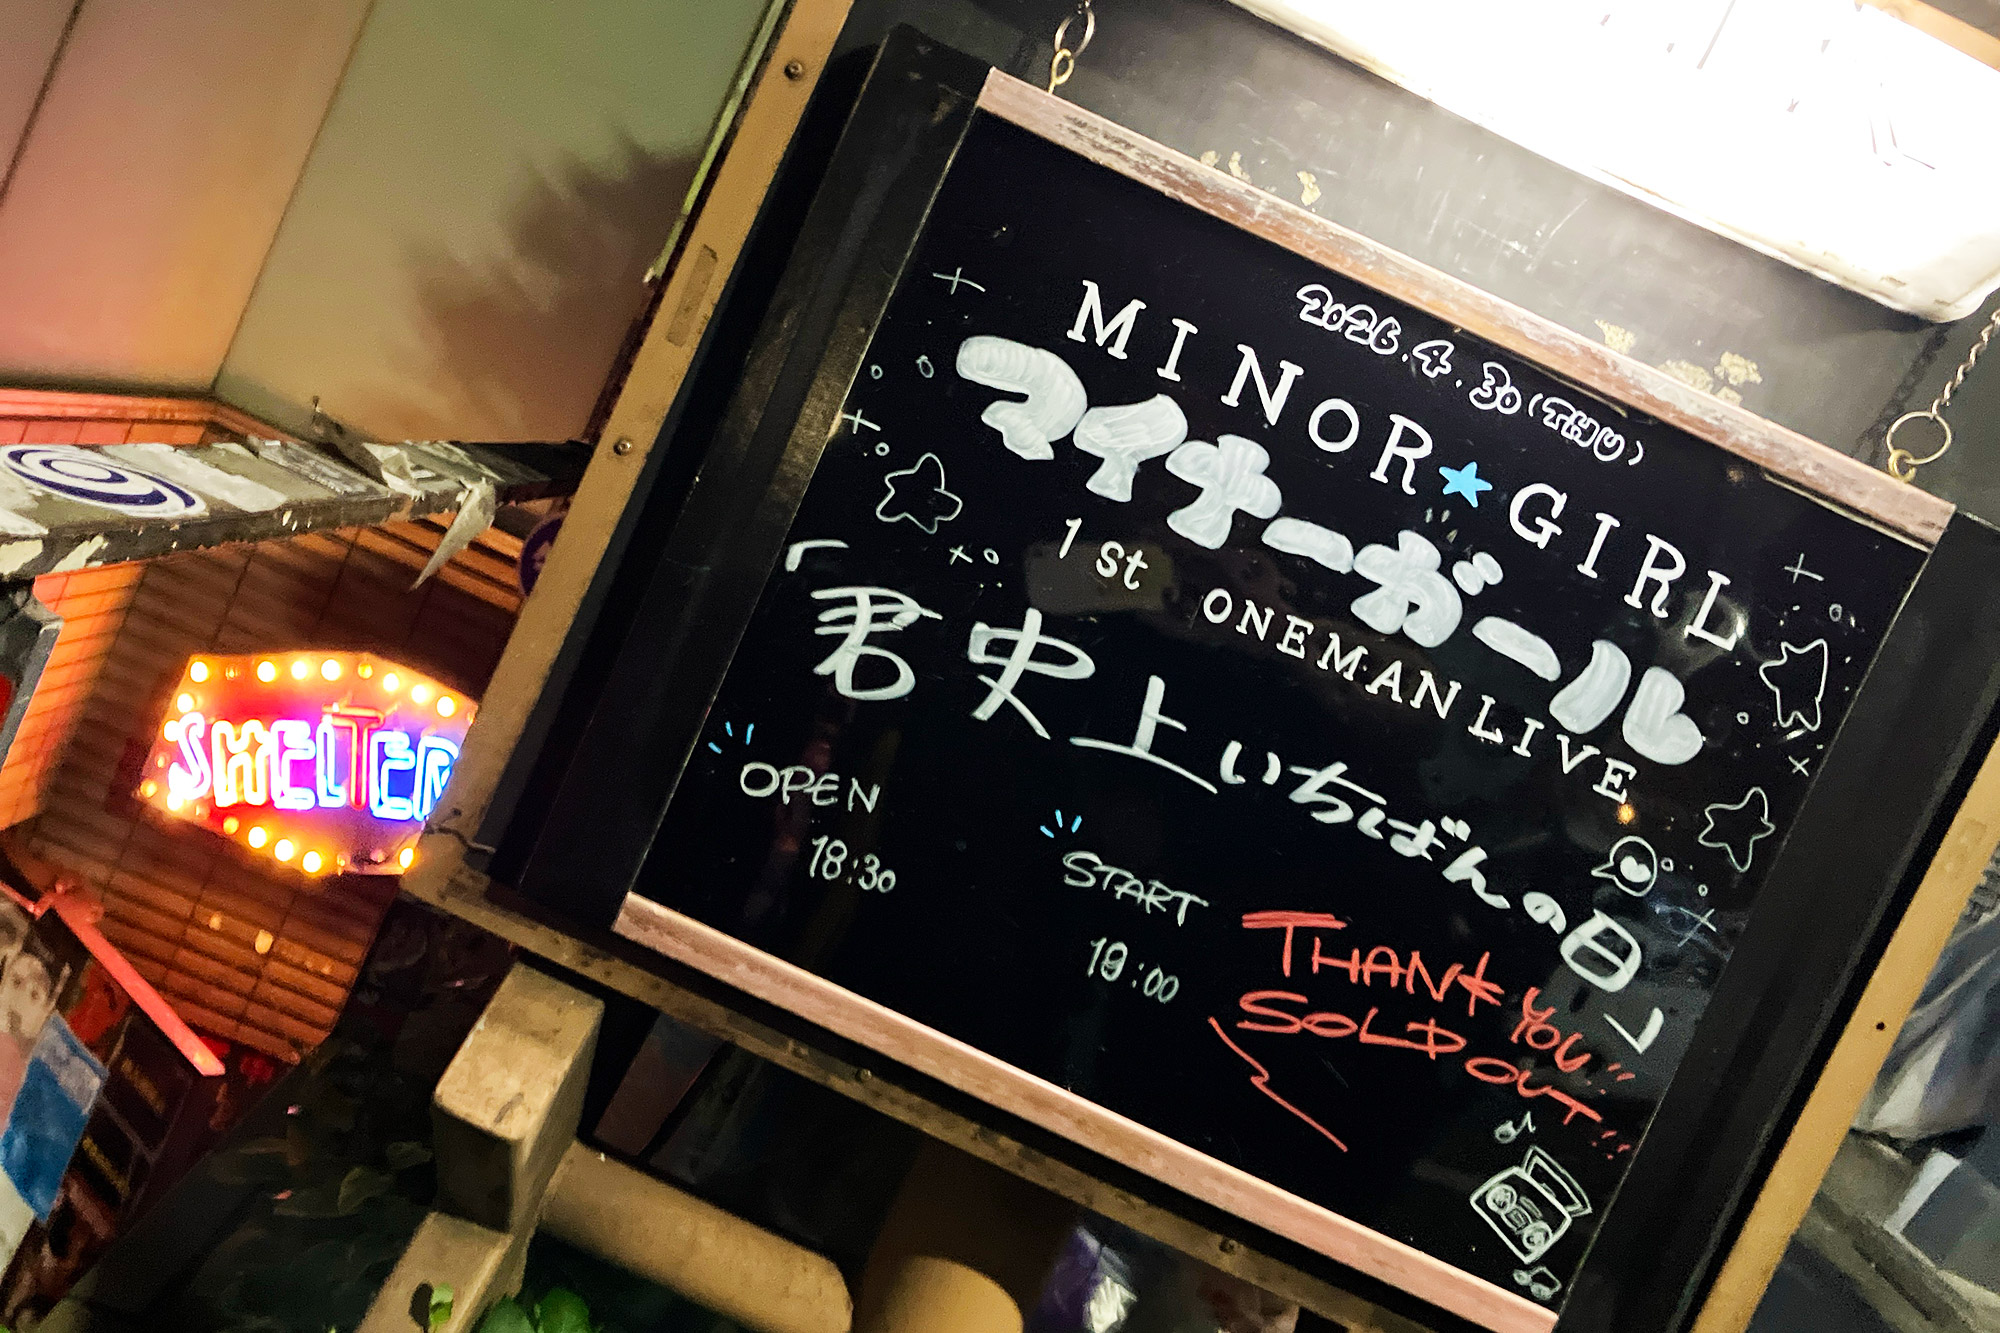 2026.4.30(THU)
MINOR★GIRL
マイナーガール
1st ONEMANLIVE
「君史上いちばんの日」
OPEN
18:30
START
19:00
THANK YOU!!
SOLD OUT!!
SHELTER